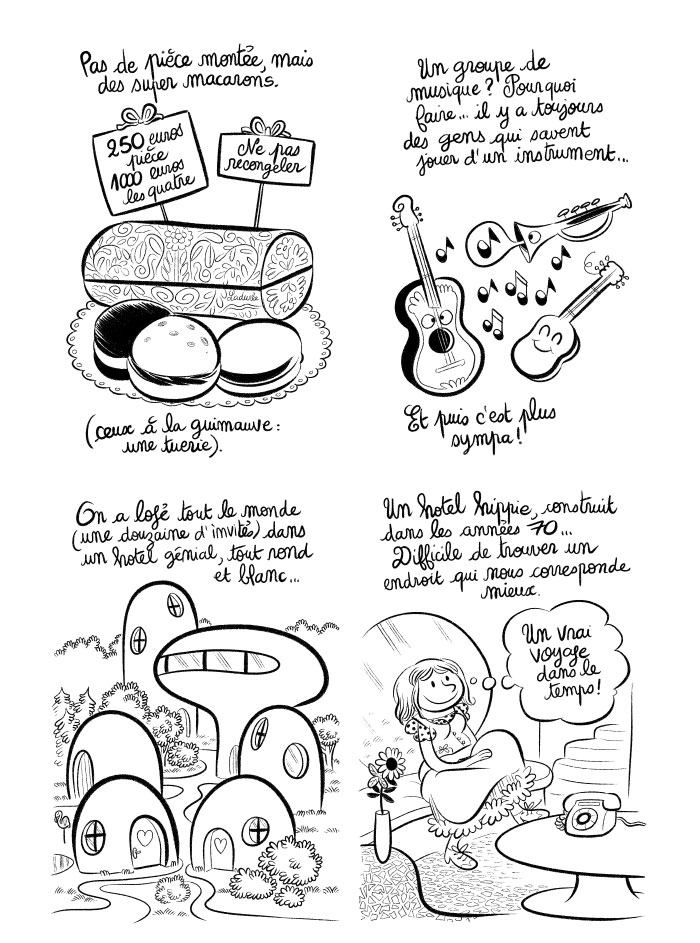 Pas de pièce montée, mais
des super macarons.
250 euros
pièce
1000 euros
les quatre
Ne pas
recongeler
Ladurée
(ceux à la guimauve :
une tuerie).
Un groupe de
musique ? Pourquoi
faire... il y a toujours
des gens qui savent
jouer d'un instrument...
Et puis c'est plus
sympa !
On a logé tout le monde
(une douzaine d'invités) dans
un hotel génial, tout rond
et blanc...
Un hotel hippie, construit
dans les années 70...
Difficile de trouver un
endroit qui nous corresponde
mieux.
Un vrai
voyage
dans le
temps !